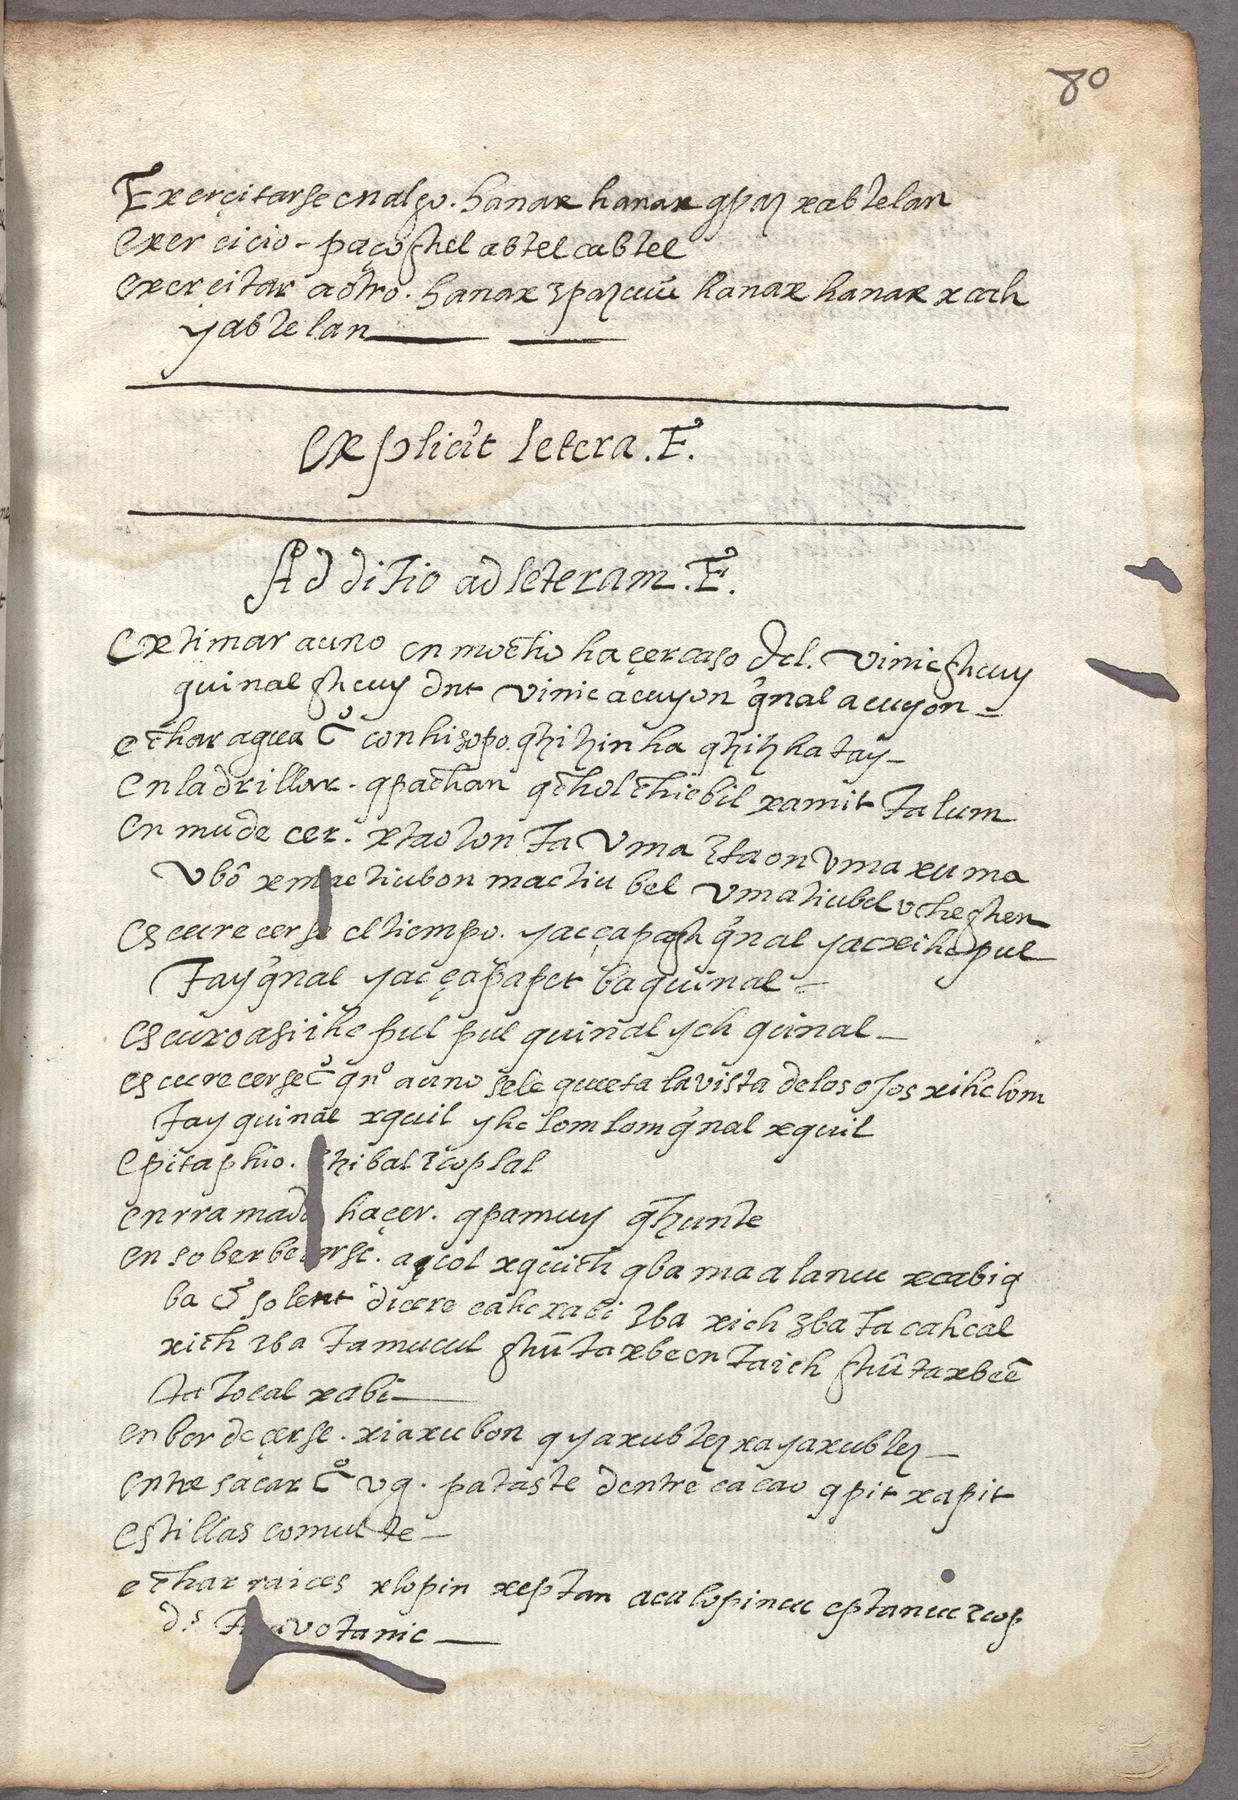 80
Exerçitarse en algo. hanax hanax qpaʒ xabtelan
exercicio - paçoghel abtel cabtel
exerçitar aotro. hanax ʒpaʒuuĩ hanax hanax xcah
yabtelan
explicit letera. E.
Additio ad leteram. E.
extimar auno en mucho haçer caso del. vinicghcuy
quinal ghcuy dnt vinic acuyon q̃nal acuyon
echar agua c̃ con hisopo. qhihin ha qhih hatay
enladrillar. qpachan qchol chicbil xamit ta lum
enmudecer. xtaoton ta vma ʒtaon vma xuma
vbõ xmactiubon mactiu bel vmatiubel vcheghen
escurecerse el tiempo. yacçapagh q̃nal yacxihcpul
tay q̃nal yacçapapet baquinal
escuro asi ihc pul pul quinal ych quinal
escurecerse c̃ qn̊o auno sele queeta la vista delos ojos xihclom
tay quinal xquil yhc lom lom q̃nal xquil
epitaphio. ʒhibal ʒcoplal
enrramada haçer. qpamuy qhunte
ensoberbearse. aqcol xquich qba ma alanuc xcabiq
ba c̃ solent dicere cahc xabi ʒba xich ʒba ta cahcal
xich ʒba ta mucul ghũtaxbeen ta ich ghũtaxbeẽ
ta tocal xabi
enbordeçerse. xiaxubon qyaxubteʒ xayaxubteʒ
entresacar c̃ vg. pataste dentre cacao qpit xapit
estillas comuc te
echar raices xlopin xeptan aca lopinuc eptanuc ʒcop
d.s votanic